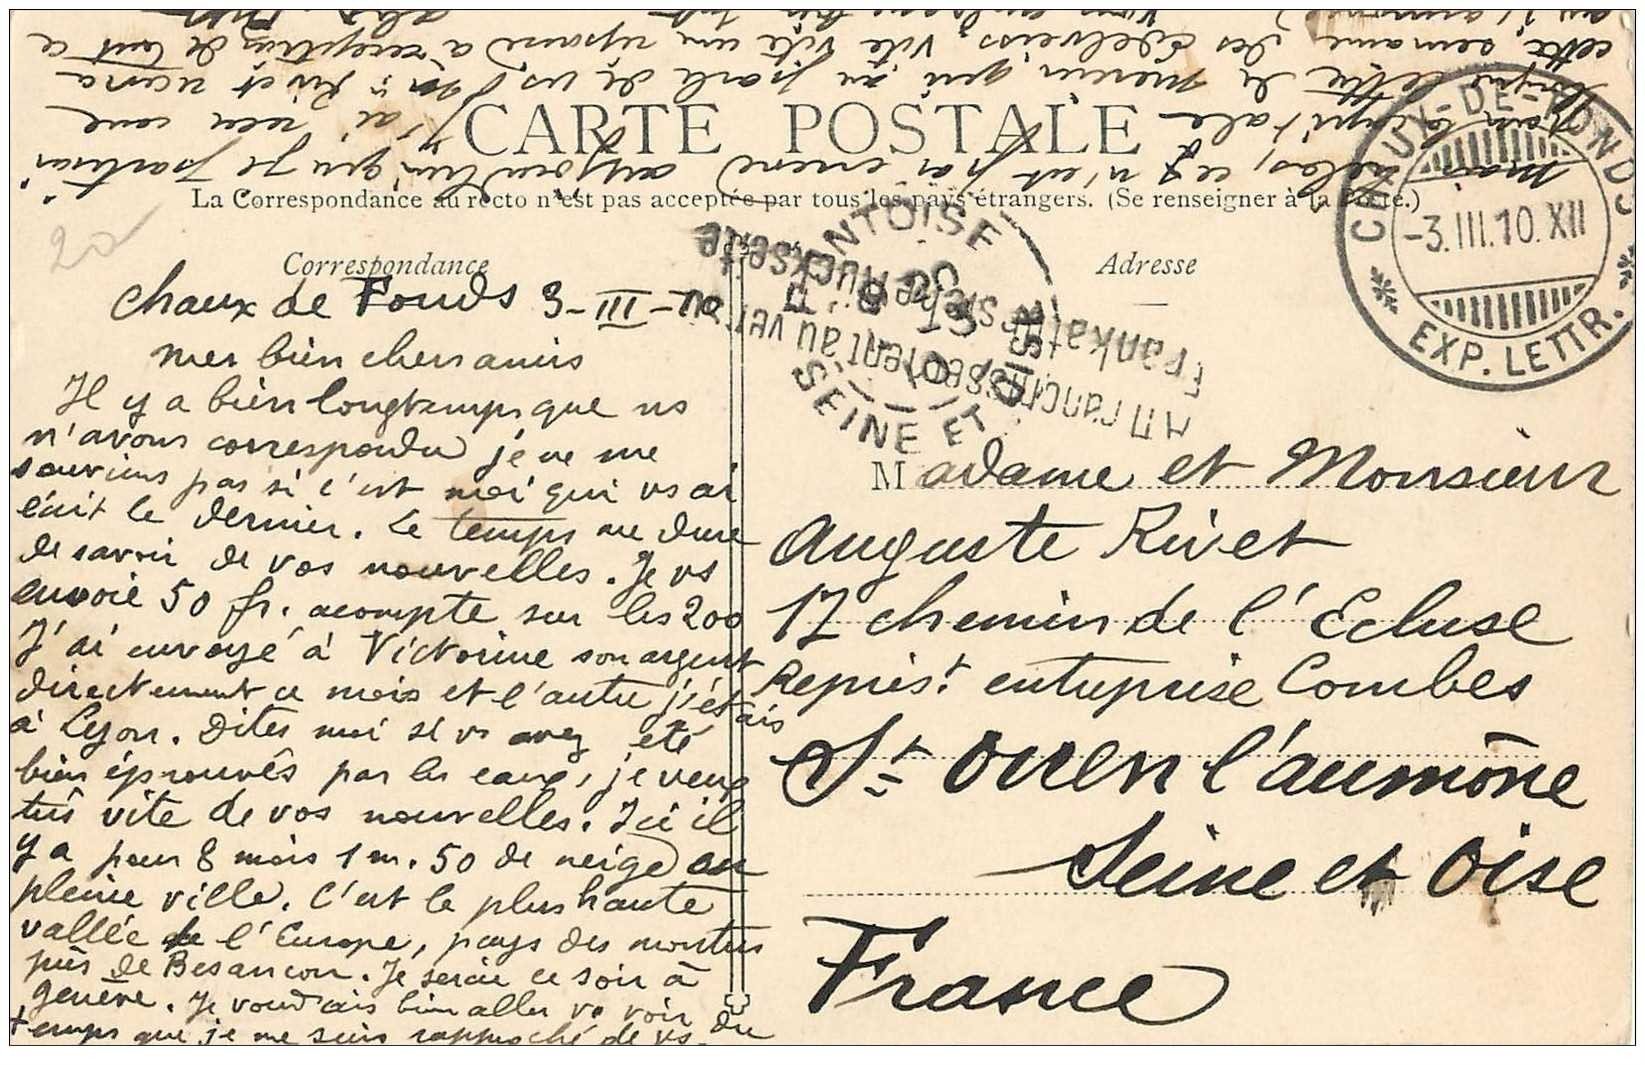 CARTE POSTALE
La Correspondance au recto n'est pas acceptée par tous les pays étrangers. (Se renseigner à la Poste.)
Correspondance
Adresse
20
CHAUX-DE-FONDS
-3.III.10.XII
EXP. LETTR.
SEINE ET OISE
Affranchissement au verso
Frankatur siehe Rückseite
chaux de Fonds 3-III-10
mes bien chers amis
Il y a bien longtemps que ns
n'avons correspondu je ne me
souviens pas si c'est moi qui vs ai
écrit le dernier. Le temps me dure
de savoir de vos nouvelles. Je vs
envoie 50 fr. acompte sur les 200
J'ai envoyé à Victorine son argent
directement ce mois et l'autre j'étais
à Lyon. Dites moi si vs avez été
bien éprouvés par les eaux, je veux
très vite de vos nouvelles. Ici il
y a pour 8 mois 1 m. 50 de neige en
pleine ville. C'est la plus haute
vallée de l'Europe, pays des montres
près de Besançon. Je serai ce soir à
Genève. Je voudrais bien aller vs voir du
temps que je me suis rapproché de vs.
mais hélas, ce n'est pas encore aujourd'hui que je partirai
pour la capitale. J'ai reçu une
longue lettre de Mercier qui parle de vs.
cette semaine des Edelveiss. Vite vite une réponse à réception de cart ce
Madame et Monsieur
Auguste Rivet
17 chemin de l'Ecluse
Représt. entreprise Combes
St Ouen l'aumône
Seine et Oise
France